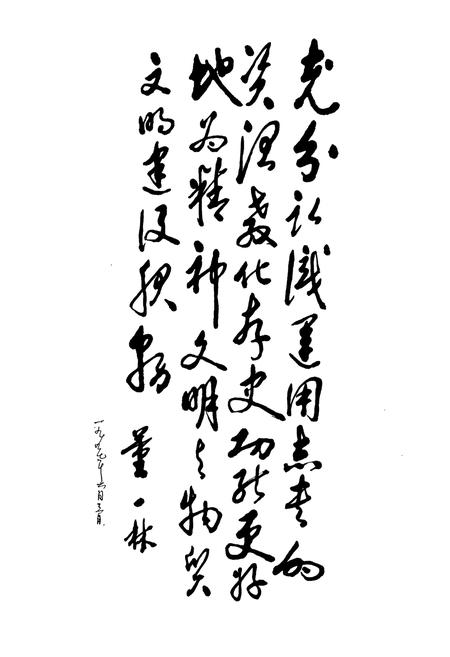 充分认识运用志书的
资治教化存史功能更好
地为精神文明与物质
文明建设服务
董一林